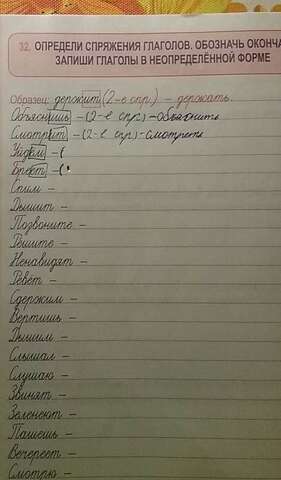 32. ОПРЕДЕЛИ СПРЯЖЕНИЯ ГЛАГОЛОВ. ОБОЗНАЧЬ ОКОНЧА
ЗАПИШИ ГЛАГОЛЫ В НЕОПРЕДЕЛЁННОЙ ФОРМЕ
Образец: держит (2-е спр.) – держать.
Объяснишь – (2-е спр.) – объяснить
Смотрит – (2-е спр.) – смотреть
Уйдём – (
Бреет – (
Спит –
Дышит –
Позвоните –
Решите –
Ненавидят –
Ревёт –
Сдержим –
Вертишь –
Дышим –
Слышал –
Слушаю –
Звинят –
Зеленеют –
Пашешь –
Вечереет –
Смотрю –